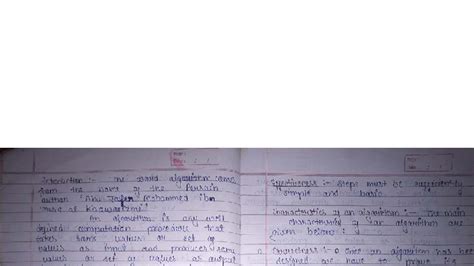 Introduction :- The word algorithm comes
from the name of the Persian
author 'Abu Jafar Mohammed ibn
Musa al Khowarizmi'
An algorithm is any well
defined computation procedure that
takes some values or set of
values as input and produces some
value or set of values as output
Effectiveness :- Steps must be
simple and basic.
Characteristics of an algorithm :- The main
characteristics of an algorithm are
given below :-
Correctness :- Once an algorithm has been
designed we have to prove its